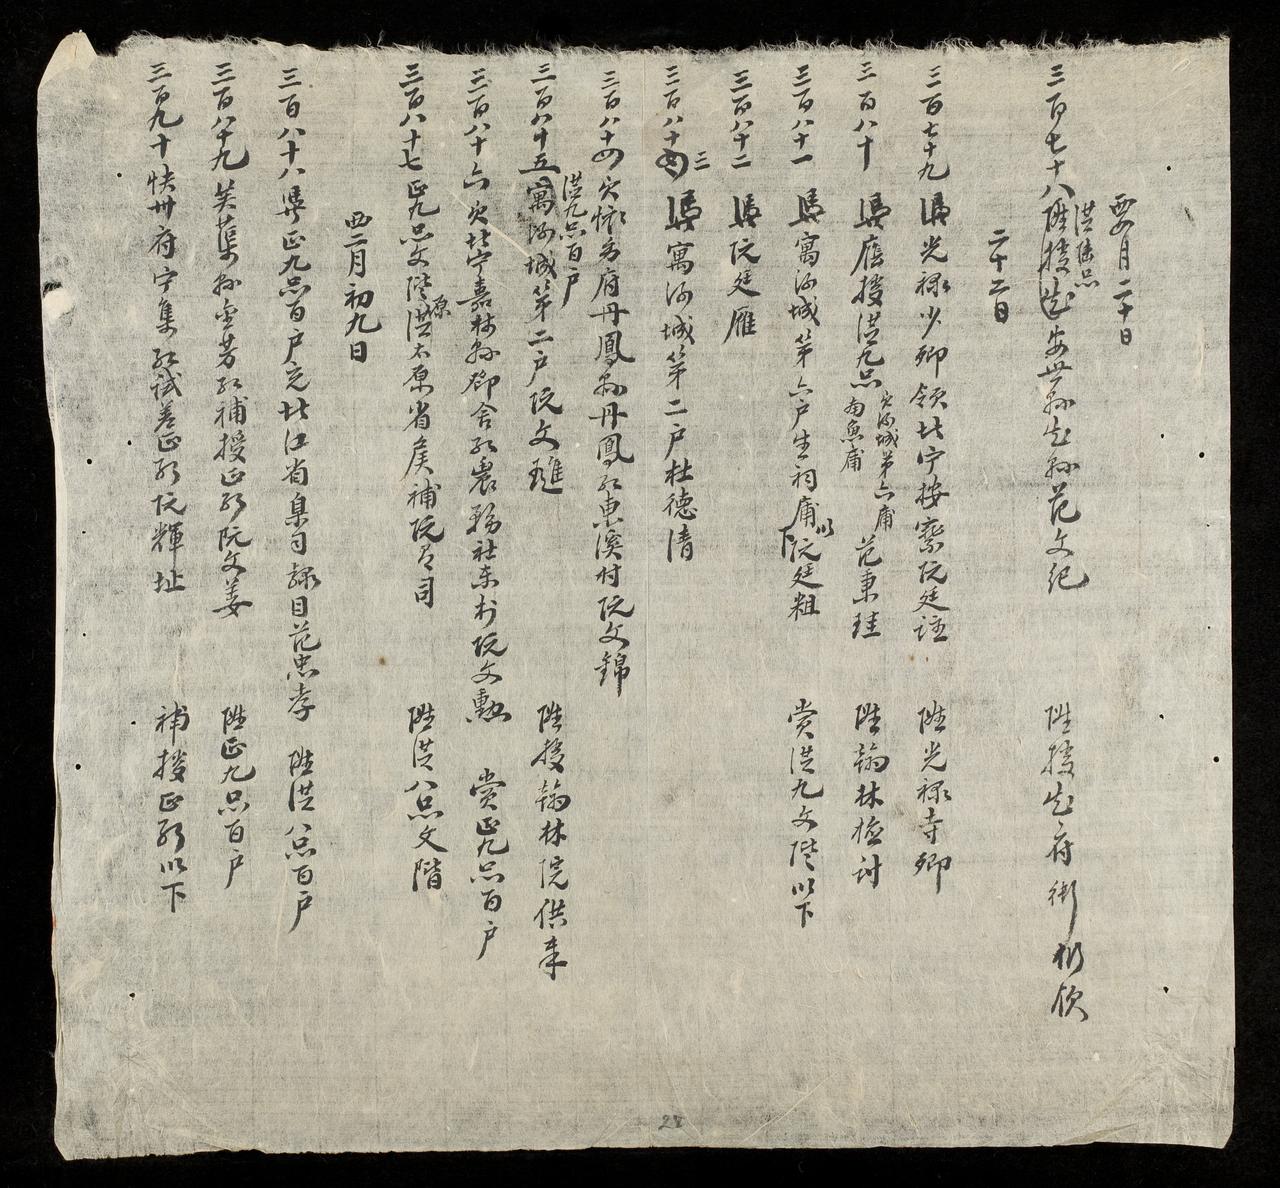 西一月二十日
三百七十八陞授知安世縣知縣范文紀 陞授知府銜仍領
從陸品
二十二日
三百七十九 準光祿少卿領北宁按察阮廷註 陞光祿寺卿
三百八十 準應授從九品 范秉珪 陞翰林檢討
河城第六庯
三百八十一 準寓河城第六戶生祠庯阮廷粗 賞從九文階以下
以下
三百八十二 準阮廷雁
三百八十三 準寓河城第二戶杜德清
三百八十四 懷方府丹鳳縣丹鳳総東溪村阮文錦
從九品百戶
三百八十五寓河城第二戶阮文璡 陞授翰林院供奉
三百八十六 北宁嘉林縣 舍総農務社東村阮文勳 賞正九品百戶
三百八十七 正九品文階從太原省候補阮 司 陞從八品文階
原
西二月初九日
三百八十八 準正九品百戶充北江省臬司錄目范忠孝 陞從八品百戶
三百八十九 芙蕖縣金芳総補授正総阮文姜 陞正九品百戶
三百九十 快州府宁集総試差正総阮輝址 補授正総以下
28